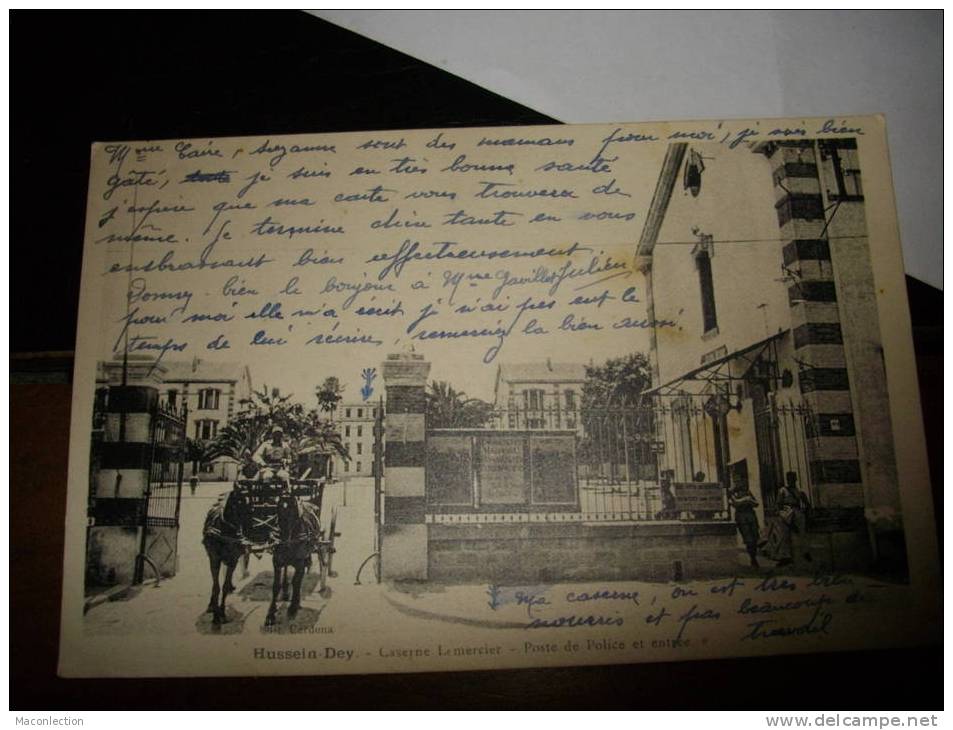 Mme Caire, Suzanne sont des mamans pour moi, je suis bien
gâté, je suis en très bonne santé
j'espère que ma carte vous trouvera de
même. Je termine chère tante en vous
embrassant bien affectueusement
Julien
Donnez bien le bonjour à Mme Gavillet
pour moi elle m'a écrit je n'ai pas eut le
temps de lui écrire, remerciez la bien aussi.
Ma caserne, on est très bien
nourris et pas beaucoup de
travail
Edit. Cardona
Hussein-Dey. - Caserne Lemercier - Poste de Police et entrée
Maconlection
www.delcampe.net